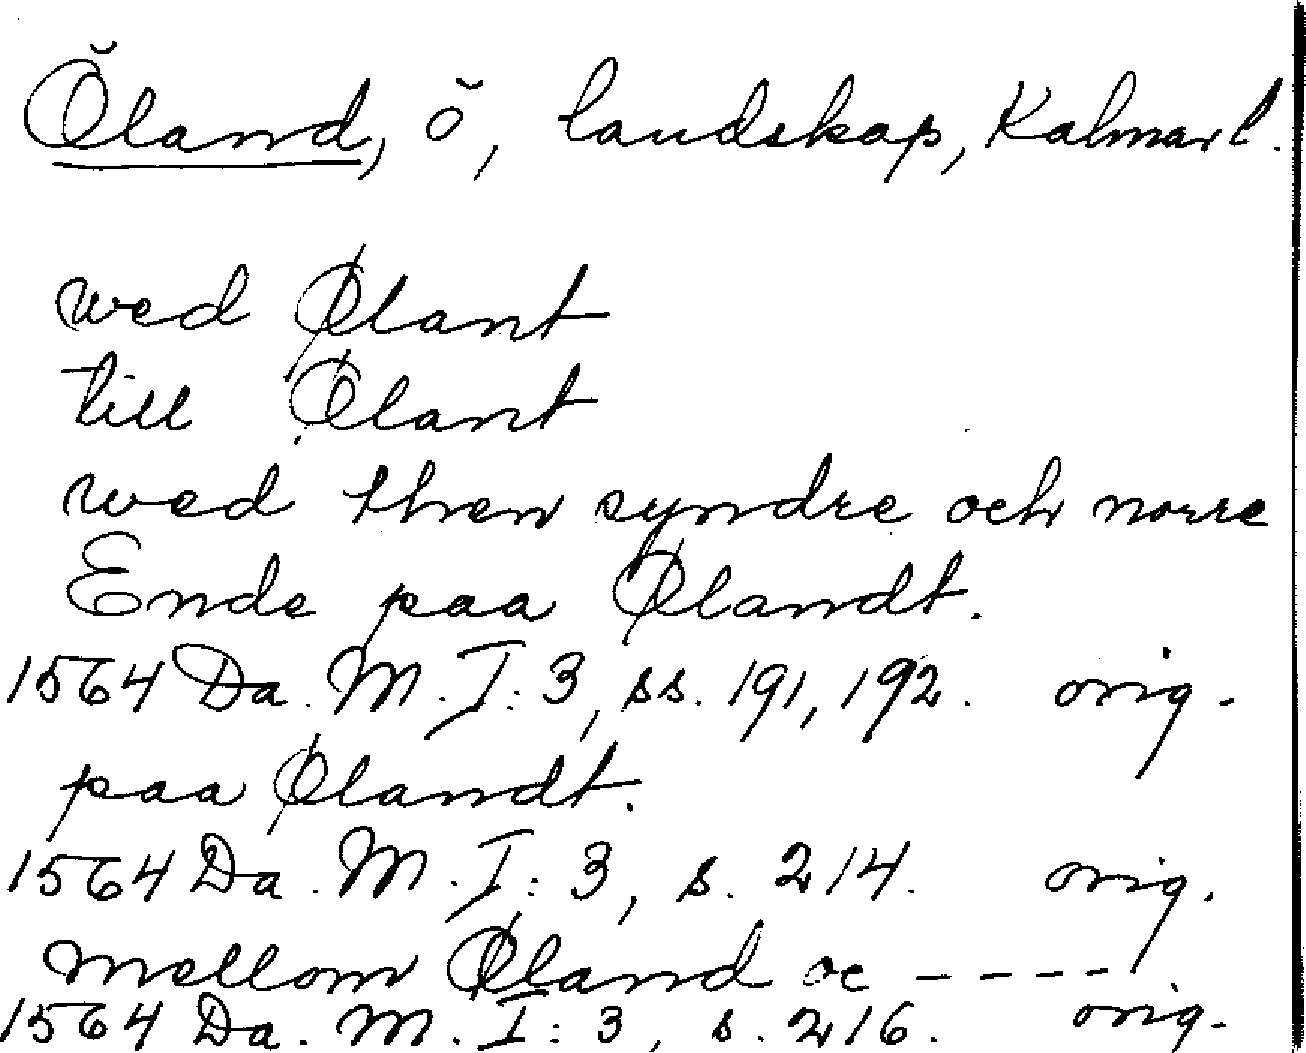 Öland, ö, landskap, Kalmar l.
wed Øland
till Ølant
wed then syndre och norre
Ende paa Ølandt.
1564 Da. M. I: 3, ss. 191, 192. orig.
paa Ølandt.
1564 Da. M. I: 3, s. 214. orig.
mellom Øland oc -----
1564 Da. M. I: 3, s. 216. orig.